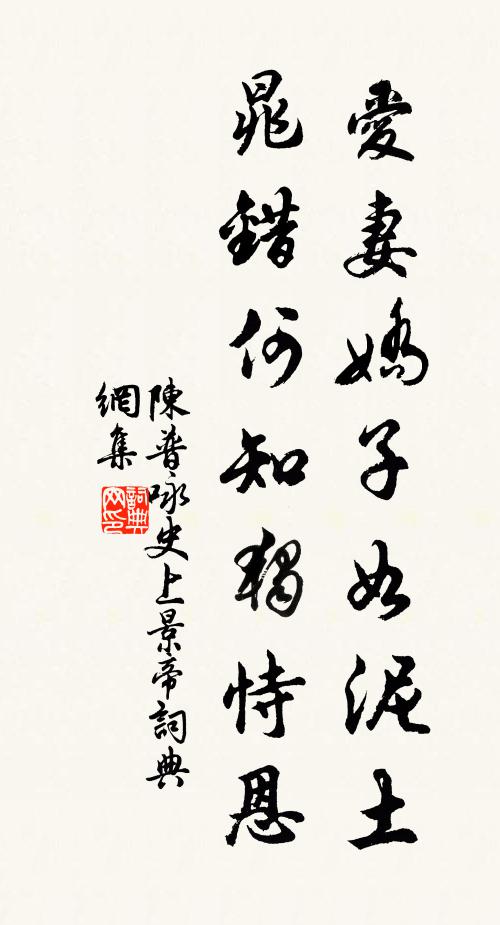 愛妻嬌子如泥土
晁錯何知獨恃恩
陳普咏史上景帝詞典
網集
詞典
网印